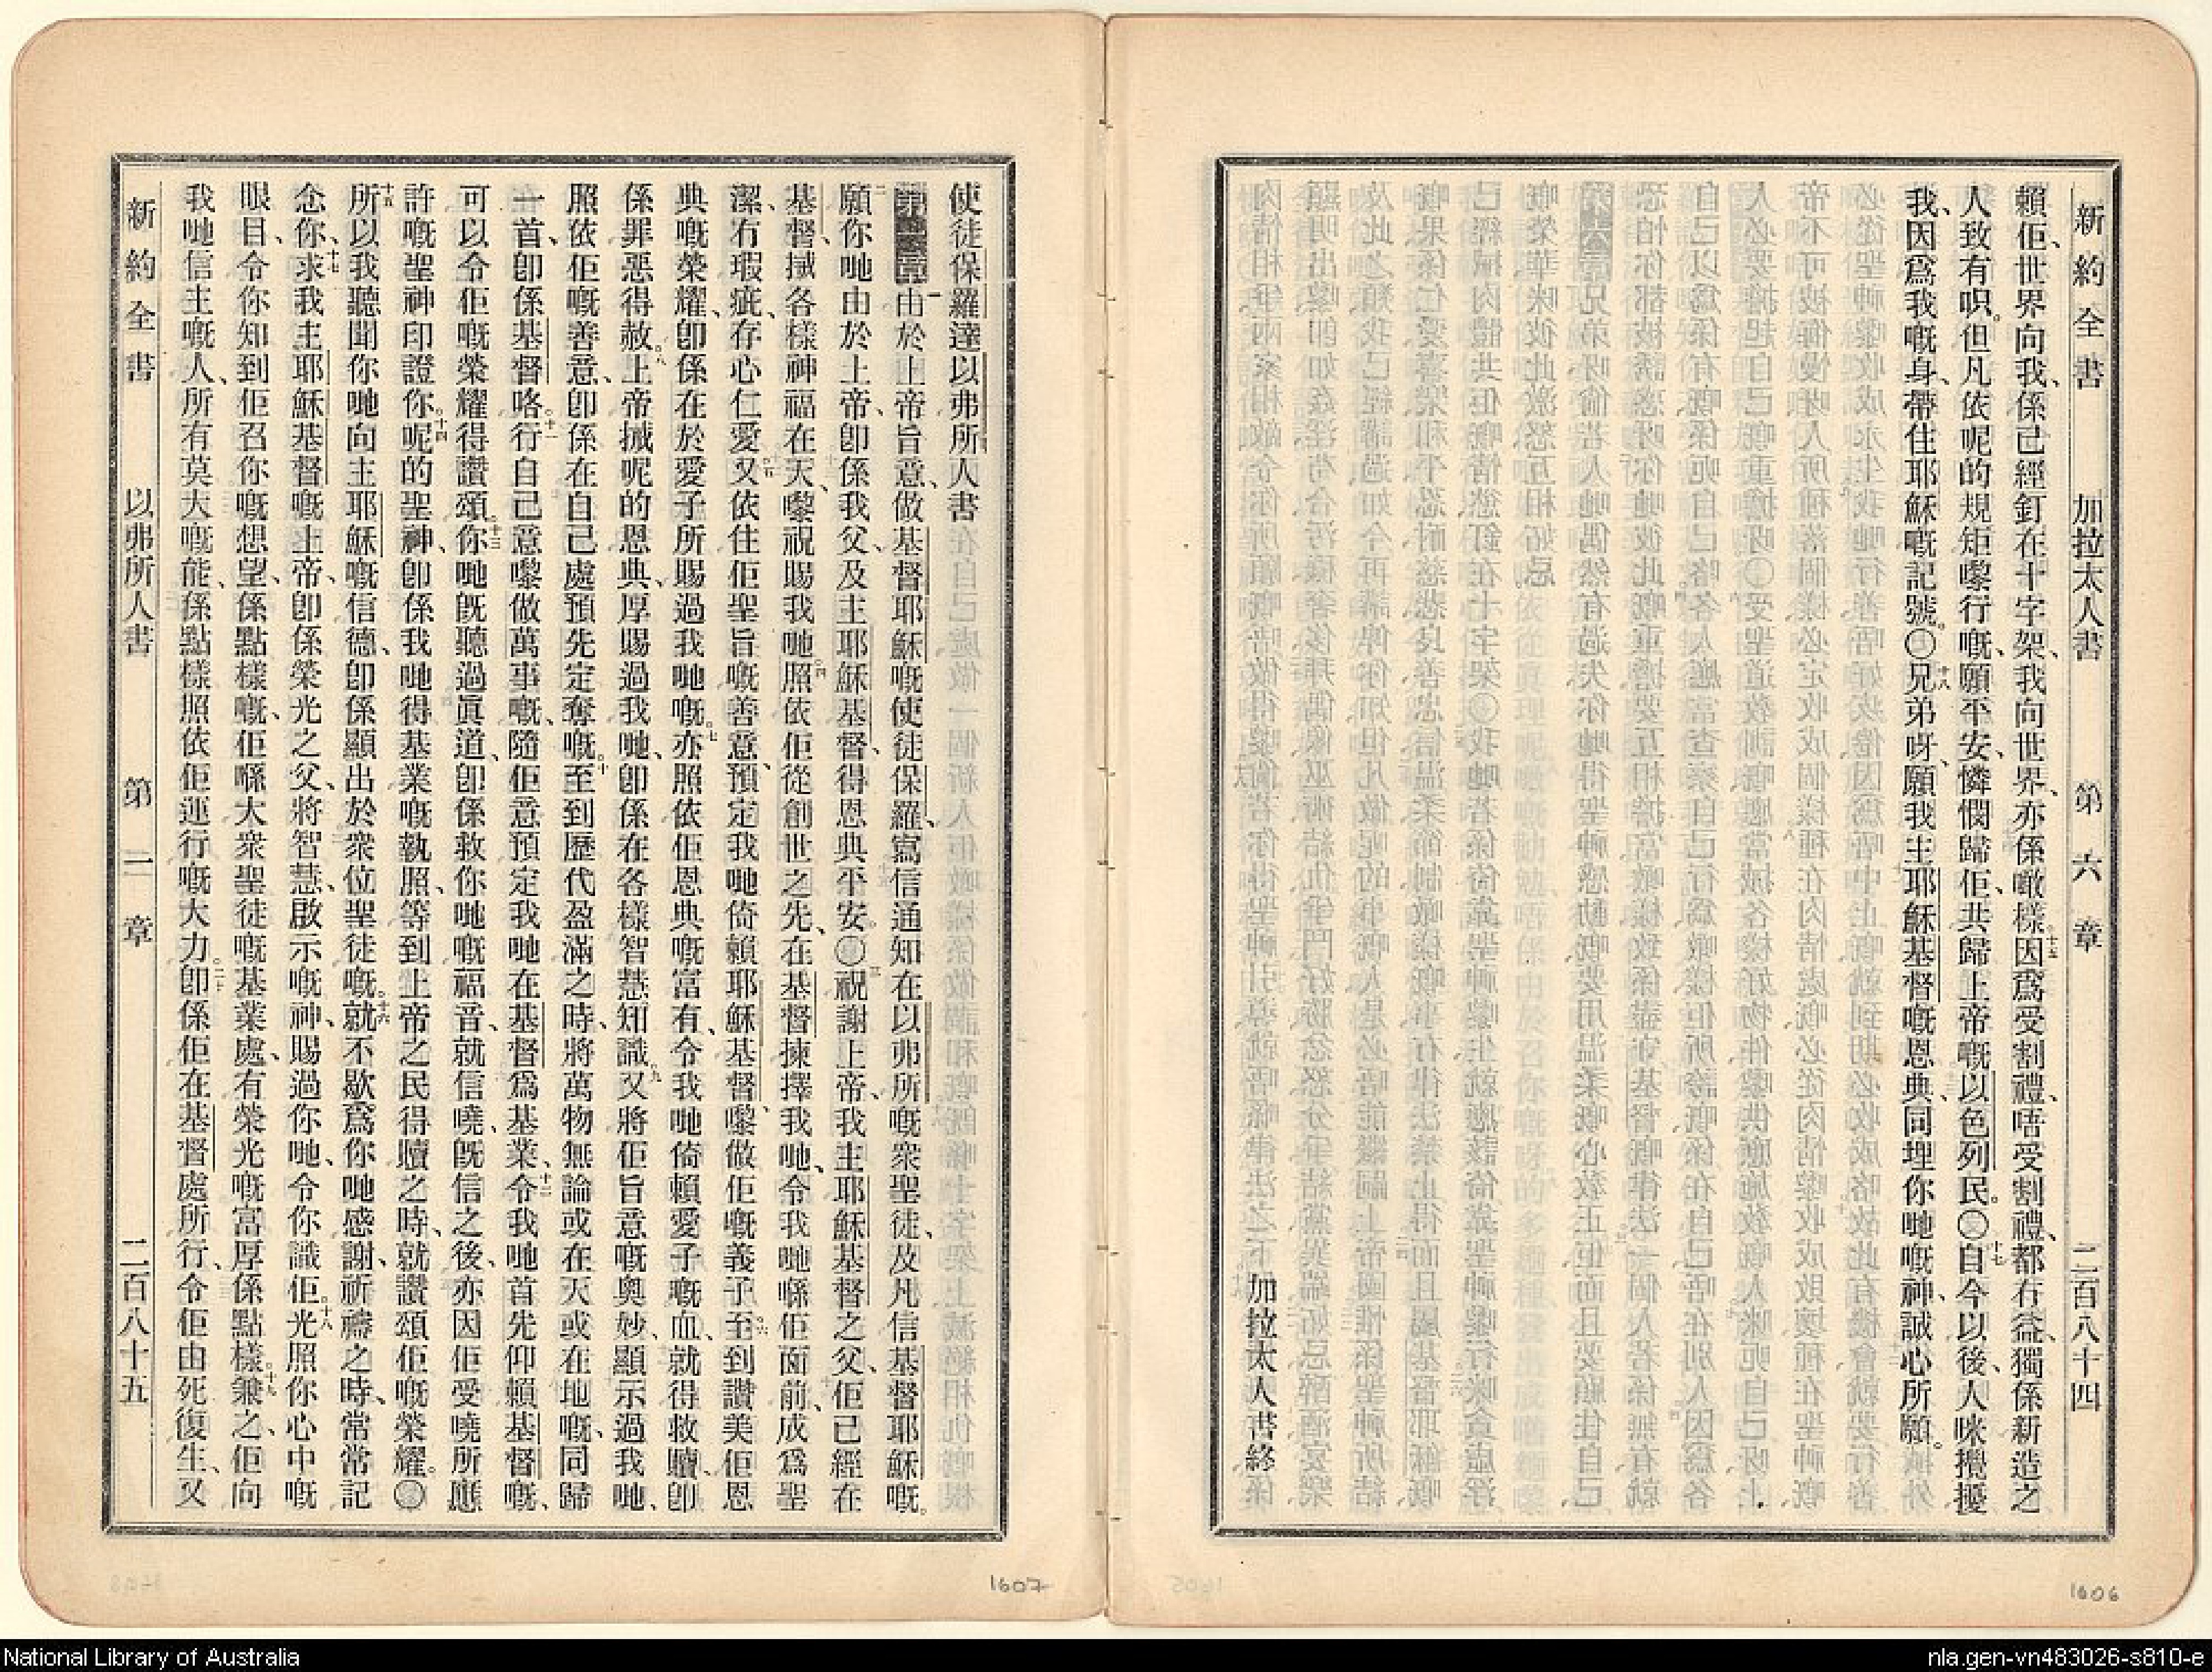 新約全書 加拉太人書 第六章 二百八十四
賴佢、世界向我、係已經釘在十字架、我向世界、亦係噉樣。十五因爲受割禮、唔受割禮、都冇益、獨係新造之
人致有呮。但凡依呢的規矩嚟行嘅、願平安、憐憫歸佢、共歸上帝嘅以色列民。〇十七自今以後、人咪攪擾
我、因爲我嘅身、帶住耶穌嘅記號。〇十八兄弟呀、願我主耶穌基督嘅恩典、同埋你哋嘅神、誠心所願。
加拉太人書終
使徒保羅達以弗所人書
第一章一由於上帝旨意、做基督耶穌嘅使徒保羅、寫信通知在以弗所嘅衆聖徒、及凡信基督耶穌嘅。
二願你哋由於上帝、卽係我父、及主耶穌基督、得恩典平安。〇三祝謝上帝、我主耶穌基督之父、佢已經在
基督、攠各樣神福在天、嚟祝賜我哋。四照依佢從創世之先、在基督揀擇我哋、令我哋喺佢面前、成爲聖
潔、冇瑕疵、存心仁愛。五又依住佢聖旨嘅善意、預定我哋倚賴耶穌基督、嚟做佢嘅義子。六至到讚美佢恩
典嘅榮耀、卽係在於愛子所賜過我哋嘅。七亦照依佢恩典嘅富有、令我哋倚賴愛子嘅血、就得救贖、卽
係罪惡得赦。八上帝攠呢的恩典、厚賜過我哋、卽係在各樣智慧知識。九又將佢旨意嘅奧妙、顯示過我哋、
照依佢嘅善意、卽係在自己處預先定奪嘅。十至到歷代盈滿之時、將萬物無論或在天或在地嘅、同歸
一首、卽係基督咯。十一行自己意嚟做萬事嘅、隨佢意預定我哋在基督爲基業、十二令我哋首先仰賴基督嘅、
可以令佢嘅榮耀得讚頌。十三你哋旣聽過眞道、卽係救你哋嘅福音、就信嘵、旣信之後、亦因佢受嘵所應
許嘅聖神印證你。十四呢的聖神、卽係我哋得基業嘅執照、等到上帝之民得贖之時、就讚頌佢嘅榮耀。〇
十五所以我聽聞你哋向主耶穌嘅信德、卽係顯出於衆位聖徒嘅。十六就不歇爲你哋感謝、祈禱之時、常常記
念你、十七求我主耶穌基督嘅上帝、卽係榮光之父、將智慧、啟示嘅神、賜過你哋、令你識佢。十八光照你心中嘅
眼目、令你知到佢召你嘅想望、係點樣嘅、佢喺大衆聖徒嘅基業處、有榮光嘅富厚係點樣。十九兼之、佢向
我哋信主嘅人、所有莫大嘅能、係點樣照依佢運行嘅大力。二十卽係佢在基督處所行、令佢由死復生、又
新約全書 以弗所人書 第一章 二百八十五
1607
1606
National Library of Australia
nla.gen-vn483026-s810-e